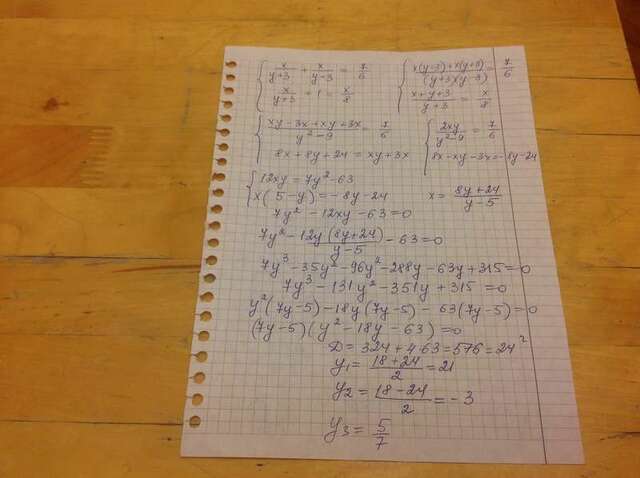 { x/(y+3) + x/(y-3) = 7/6
x/(y+3) + 1 = x/8
{ (x(y-3)+x(y+3))/((y+3)(y-3)) = 7/6
(x+y+3)/(y+3) = x/8
{ (xy-3x+xy+3x)/(y²-9) = 7/6
8x+8y+24 = xy+3x
{ 2xy/(y²-9) = 7/6
8x-xy-3x = -8y-24
{ 12xy = 7y²-63
x(5-y) = -8y-24
x = (8y+24)/(y-5)
7y² - 12xy - 63 = 0
7y² - 12y(8y+24)/(y-5) - 63 = 0
7y³ - 35y² - 96y² - 288y - 63y + 315 = 0
7y³ - 131y² - 351y + 315 = 0
y²(7y-5) - 18y(7y-5) - 63(7y-5) = 0
(7y-5)(y² - 18y - 63) = 0
D = 324 + 4·63 = 576 = 24²
y₁ = (18+24)/2 = 21
y₂ = (18-24)/2 = -3
y₃ = 5/7